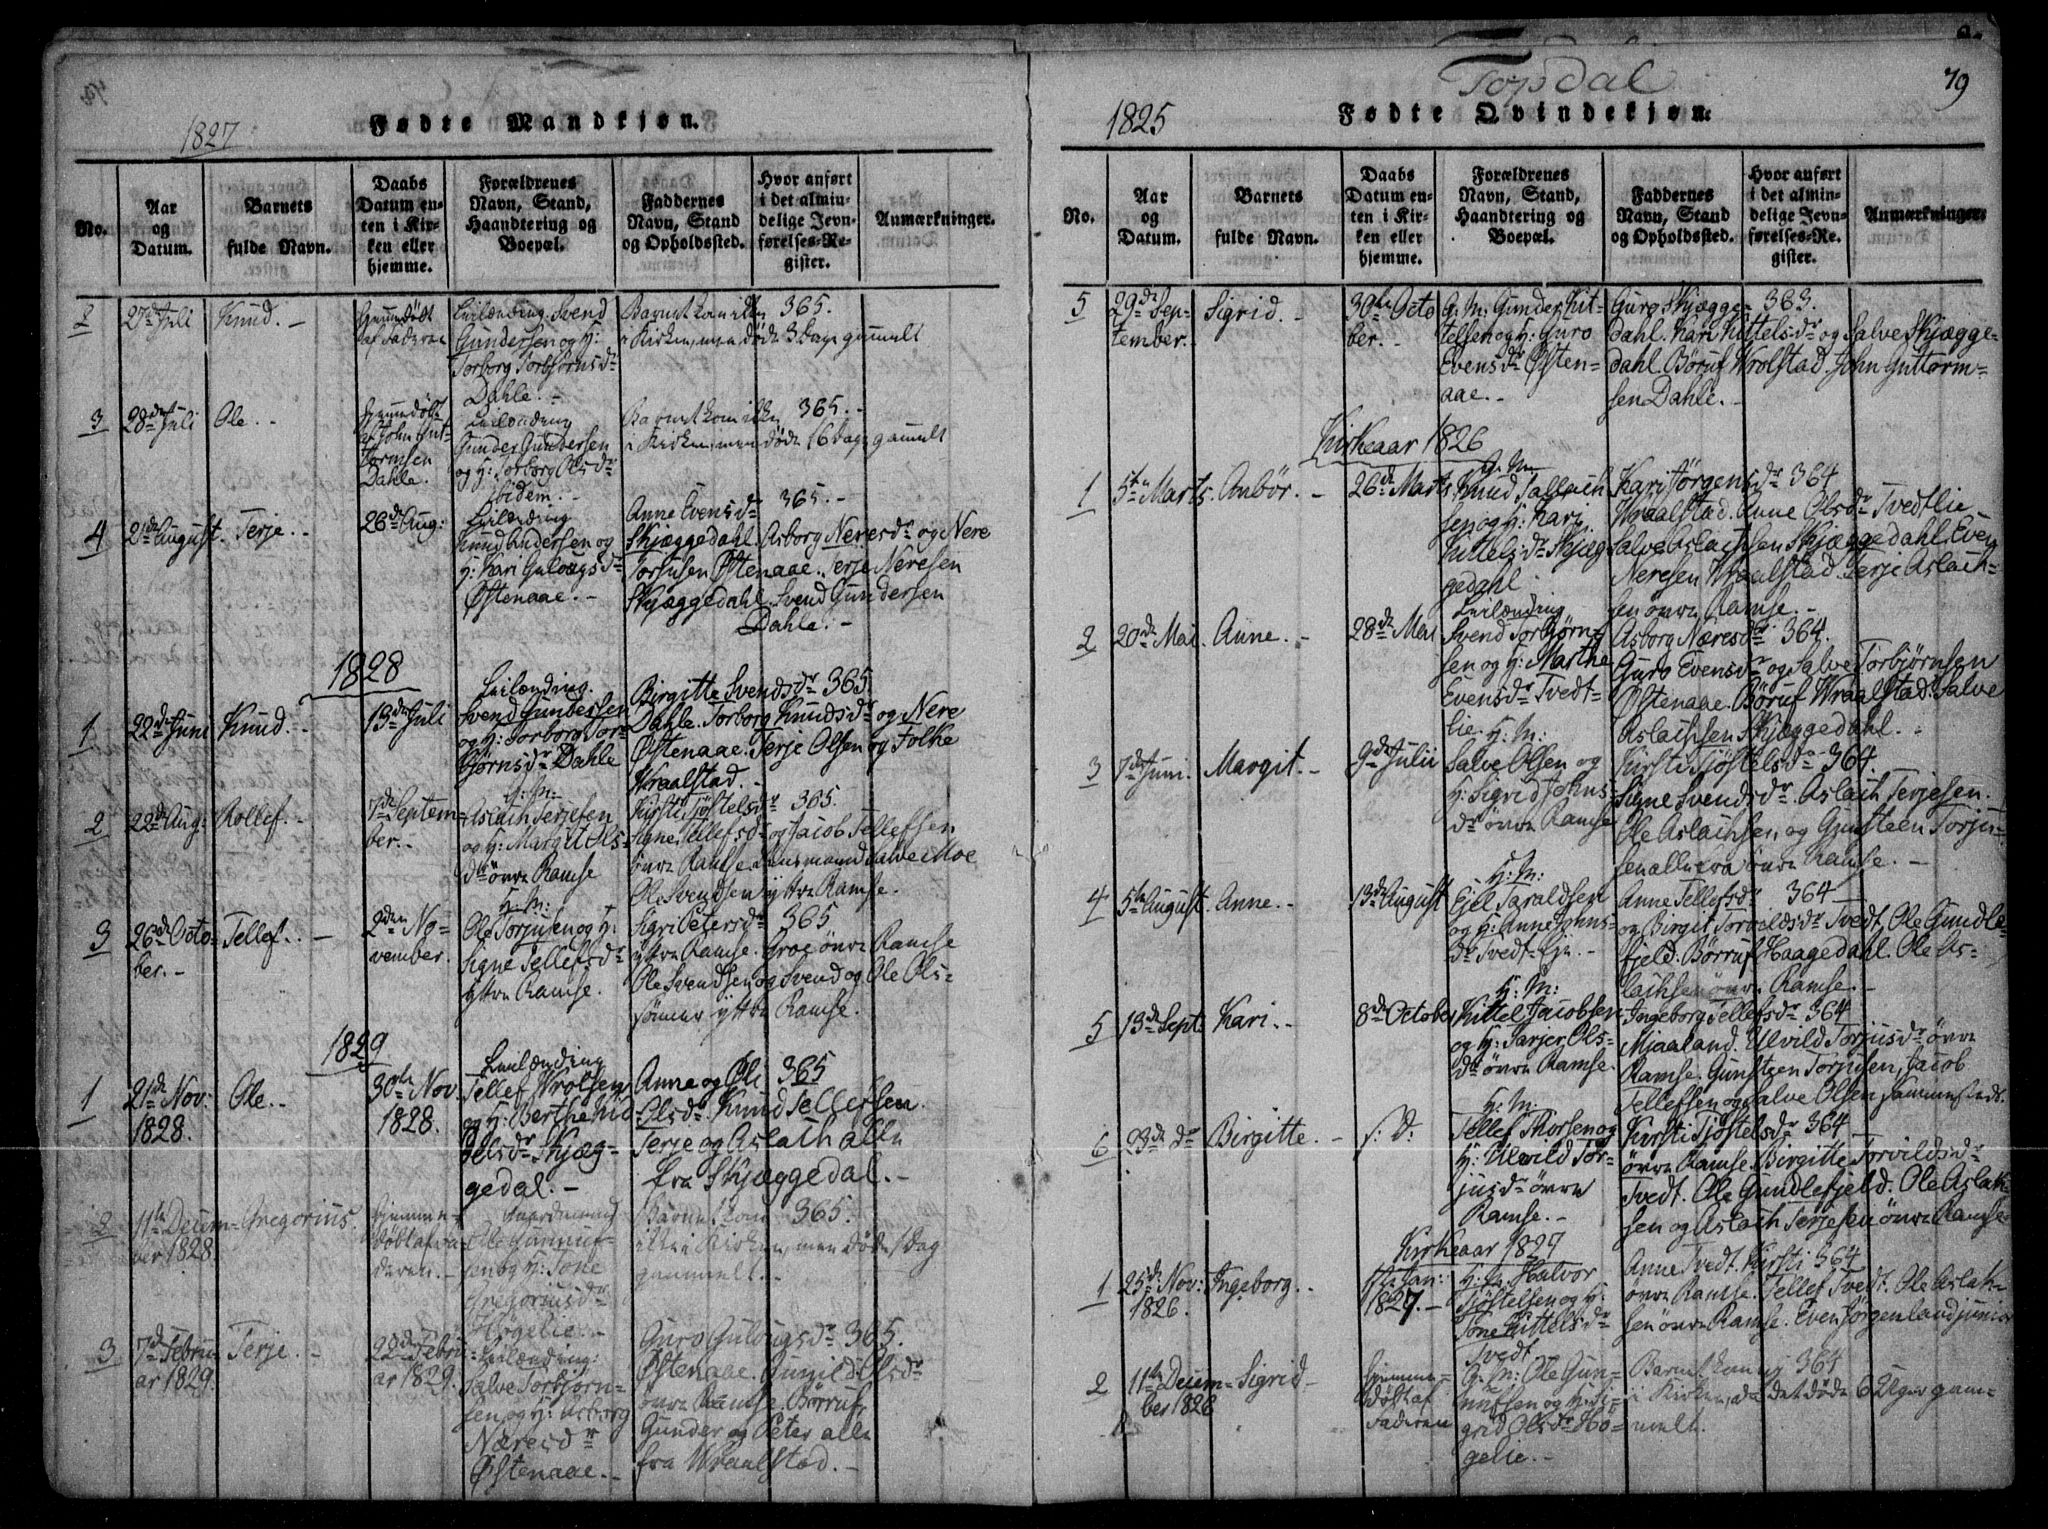 1827
Fødte Mandkjøn.
No.
Aar
og
Datum.
Barnets
fulde Navn.
Daabs
Datum en-
ten i Kir-
ken eller
hjemme.
Forældrenes
Navn, Stand,
Haandtering og
Boepæl.
Faddernes
Navn, Stand
og Opholdssted.
Hvor anført
i det almin-
delige Jevn-
førelses-Re-
gister.
Anmærkninger.
2
27de Juli
Knud.
Hjemmedøbt
af Faderen
Leilænding Svend
Gundersen og H:
Torborg Torbjørnsdr
Dahle.
Barnet kom ikke 365.
i Kirken, men døde 3 dage gammelt
3
28de Juli
Ole.
Hjemmedøbt
af John Gut-
tormsen
Dahle.
Leilænding
Gunder Gundersen
og H: Torborg Olsdr
ibidem.
Barnet kom ikke 365.
i Kirken, men døde 16 dage gammelt
4
21de August.
Terje.
26de Aug:
Leilænding
Knud Andersen og
H: Kari Gulougsdr
Østenaae.
Anne Evensdr 365.
Skjæggedahl. Asborg Neresdr og Nere
Torjusen Østenaae. Terje Neresen
Skjæggedahl. Svend Gundersen
Dahle.
1828
1
22de Juni
Knud.
13de Juli
Leilænding.
Svend Gundersen
og H: Torborg Tor-
bjørnsdr Dahle
Birgitte Svendsdr 365.
Dahle. Torborg Knudsdr og Nere
Østenaae. Terje Olsen og Folke
Wraalstad.
2
22de Aug:
Rollef.
7de Septem-
ber.
G: M:
Aslach Terjesen
og H: Margit Ols-
dr øvre Ramse
Kirsti Tjøstelsdr 365.
Signe Tellefsdr og Jacob Tellefsen
øvre Ramse. Lensmand Salve Moe
Ole Svendsen yttre Ramse.
3
26de Octo-
ber.
Tellef.
2den No-
vember.
H: M:
Ole Torjusen og H:
Signe Tellefsdr
yttre Ramse.
Sigri Petersdr 365
yttre Ramse. Groe øvre Ramse
Ole Svendsen og Svend og Ole Ols-
sønner yttre Ramse.
1829
1
21de Nov:
1828.
Ole.
30te Nov
1828.
Leilænding
Tellef Wrolsen
og H: Berthe Kid-
delsdr Skjæg-
gedal.
Anne og Øli 365
Olsdr. Knud Tellefsen
Terje og Aslach alle
fra Skjæggedal.
2
11te Decem-
ber 1828.
Gregorius.
Hjemme-
døbt af Fa-
deren.
Gaardmand
Ole Gunnuf-
sen og H: Tone
Gregoriusdr
Høgelie.
Barnet kom 365.
ikke i Kirken, men døde 1 dag
gammelt.
3
7de Febru-
ar 1829.
Terje.
22de Febru-
ar 1829.
Leilænding:
Salve Torbjørn-
sen og H: Asborg
Næresdr
Østenaae.
Guro Gulougsdr 365.
Østenaae. Gunild Olsdr
øvre Ramse. Børruf,
Gunder og Peter alle
fra Wraalstad.
Topdal
79
1825
Fødte Qvindekjøn.
No.
Aar
og
Datum.
Barnets
fulde Navn.
Daabs
Datum en-
ten i Kir-
ken eller
hjemme.
Forældrenes
Navn, Stand,
Haandtering og
Boepæl.
Faddernes
Navn, Stand
og Opholdssted.
Hvor anført
i det almin-
delige Jevn-
førelses-Re-
gister.
Anmærkninger.
5
29de Sep-
tember.
Sigrid.
30te Octo-
ber.
G. M. Gunder Kit-
telsen og H: Guro
Evensdr Østen-
aae.
Guro Skjægge- 363.
dahl. Kari Kittelsdr og Salve Skjægge-
dahl. Børuf Wrolstad. John Guttorm-
sen Dahle.
Kirkeaar 1826
1
5te Marts.
Anbør.
26de Marts
G. M.
Knud Sallach-
sen og H: Kari
Kittelsdr Skjæg-
gedahl
Kari Jørgensdr 364
Wraalstad. Anne Olsdr Tvedtlie
Salve Aslachsen Skjæggedahl. Even
Neresen Wraalstad. Terje Aslach-
sen øvre Ramse.
2
20de Mai.
Anne.
28de Mai
Leilænding
Svend Torbjørn-
sen og H: Marthe
Evensdr Tvedt-
lie.
Asborg Næresdr 364.
Guro Evensdr og Salve Torbjørnsen
Østenaae. Børuf Wraalstad. Salve
Aslachsen Skjæggedahl.
3
7de Juni.
Margit.
9de Julii
H: M:
Salve Olsen og
H: Sigrid Johns-
dr øvre Ramse
Kirsti Tjøstelsdr 364
Signe Svendsdr. Aslach Terjesen.
Ole Aslachsen, og Gunsteen Torju-
sen alle fra øvre Ramse.
4
5te August.
Anne.
13de August
H: M:
Ejel Taraldsen
og H: Anne Johns-
dr Tvedt
Anne Tellefsdr 364
og Birgit Torvildsdr Tvedt, Ole Gundle-
fjeld. Børruf Haagedahl. Ole As-
lachsen øvre Ramse.
5
13de Sept:
Kari.
8de October
H: M:
Kittel Jacobsen
og H: Tarjer Ols-
dr øvre Ramse.
Ingeborg Tellefsdr 364
Mjaaland. Ulvild Torjusdr øvre
Ramse. Gunsteen Torjusen, Jacob
Tellefsen og Salve Olsen sammesteds.
6
23de dr
Birgitte.
s: D:
H: M:
Tellef Thorsen og
H: Ulvild Tor-
jusdr øvre
Ramse.
Kirsti Tjøstelsdr 364
øvre Ramse. Birgitte Torvildsdr
Tvedt. Ole Gundlefjeld. Ole Aslak-
sen og Aslach Terjesen øvre Ramse
Kirkeaar 1827
1
25de Nov:
1826.
Ingeborg.
1ste Jan:
1827.
H: M: Halvor
Tjøstelsen og H:
Tone Kittelsdr
Tvedt
Anne Tvedt. Kirsti 364
øvre Ramse. Tellef Tvedt. Ole Aslak-
sen øvre Ramse. Even Jørgenland junior
2
11te Decem-
ber 1826
Sigrid
Hjemme-
døbt af
Faderen
G. M: Ole Gun-
nufsen og H: Si-
grid Olsdr Hø-
gelie.
Barnet kom ej 364
i Kirken, da det døde 6 Uger gam-
melt.